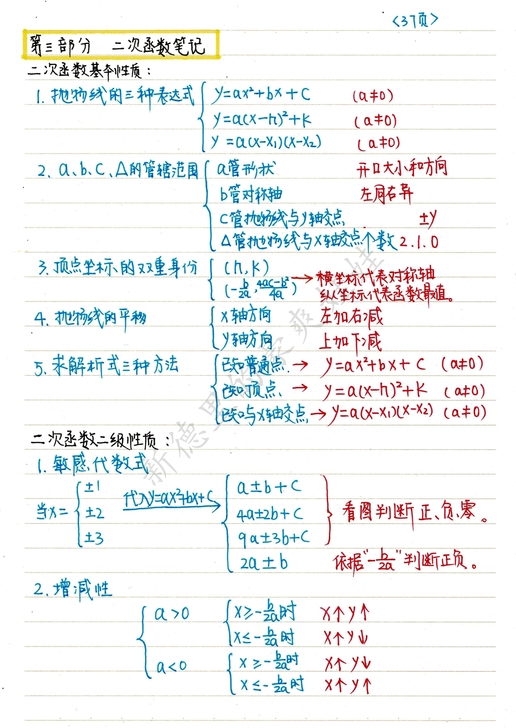 <37页>
第三部分 二次函数笔记
二次函数基本性质：
1. 抛物线的三种表达式 { y=ax²+bx+c (a≠0)
y=a(x-h)²+k (a≠0)
y=a(x-x₁)(x-x₂) (a≠0)
2. a、b、c、△的管辖范围 { a管形状 开口大小和方向
b管对称轴 左同右异
c管抛物线与y轴交点 ±y
△管抛物线与x轴交点个数 2.1.0
3. 顶点坐标的双重身份 { (h,k)
(-b/2a, 4ac-b²/4a) → 横坐标代表对称轴
纵坐标代表函数最值。
4. 抛物线的平移 { x轴方向 左加右减
y轴方向 上加下减
5. 求解析式三种方法 { 已知普通点 → y=ax²+bx+c (a≠0)
已知顶点 → y=a(x-h)²+k (a≠0)
已知与x轴交点 → y=a(x-x₁)(x-x₂) (a≠0)
二次函数二级性质：
1. 敏感代数式
当x= { ±1 ±2 ±3 代入y=ax²+bx+c → { a±b+c
4a±2b+c } 看图判断正、负、零。
9a±3b+c
2a±b 依据"-b/2a"判断正负。
2. 增减性
a>0 { x≥-b/2a时 x↑y↑
x≤-b/2a时 x↑y↓
a<0 { x≥-b/2a时 x↑y↓
x≤-b/2a时 x↑y↑